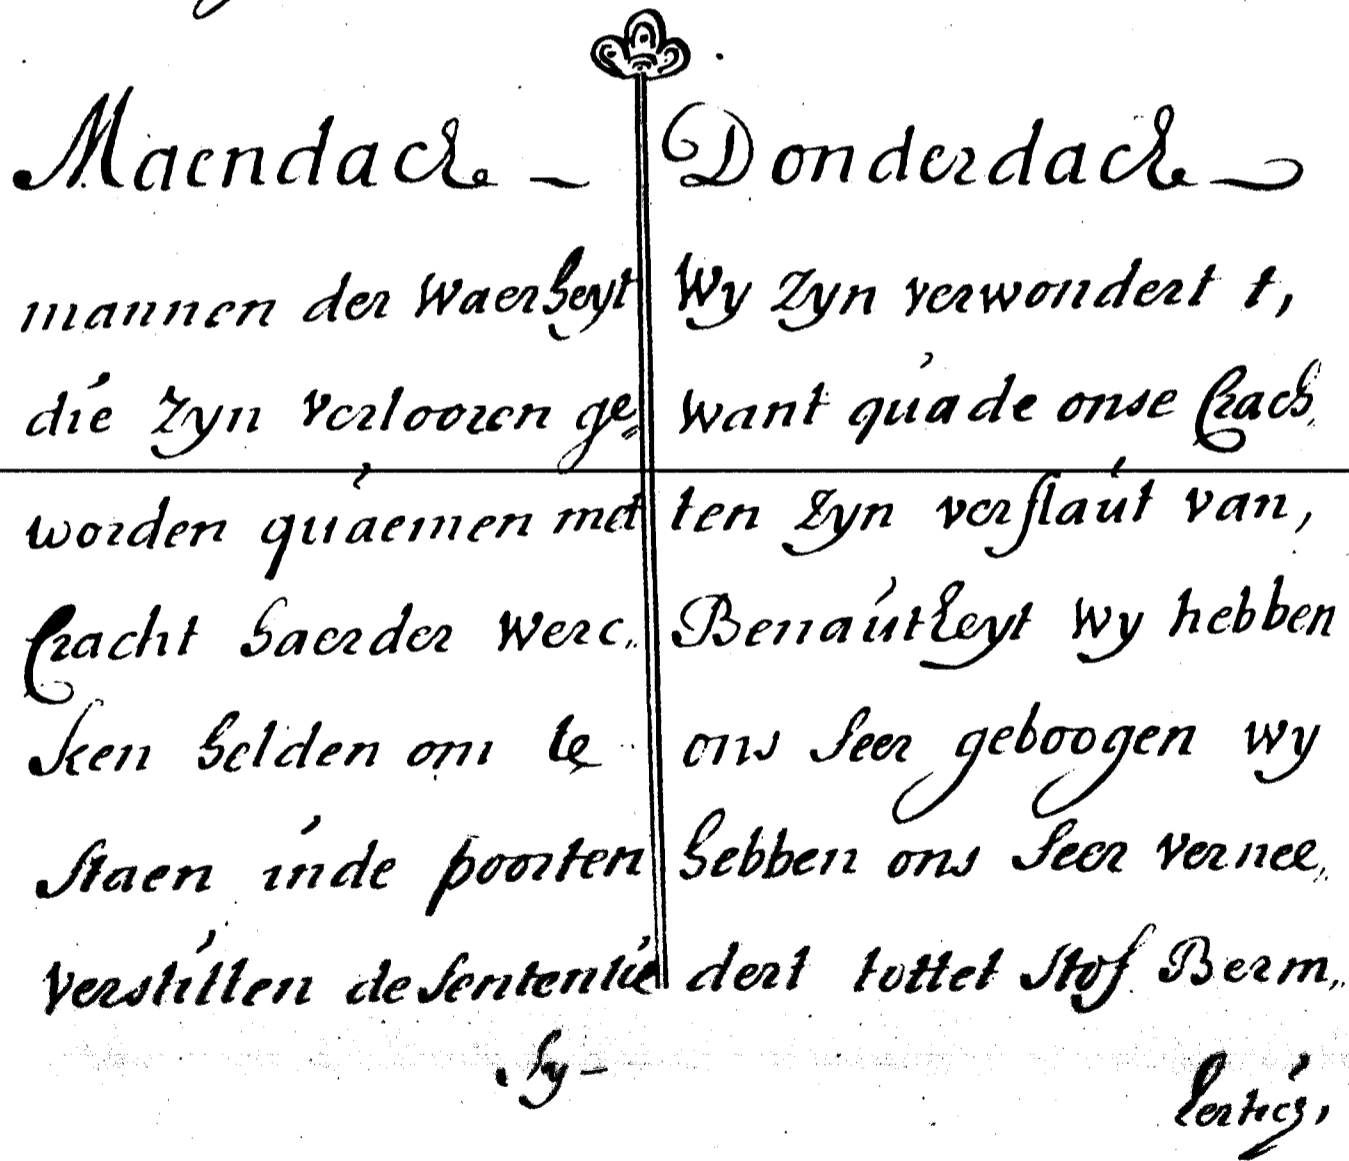 Maendach
mannen der Waerheyt
die zyn verlooren ge„
worden quaemen met
Cracht haerder werc„
ken helden om te
staen inde poorten
verstillen de sententie
Sy
Donderdach
Wy zyn verwondert t,
want quade onse Crach„
ten zyn verflaut van,
Benautheyt wy hebben
ons seer geboogen wy
hebben ons seer vernee„
dert tottet stof Berm„
hertig,